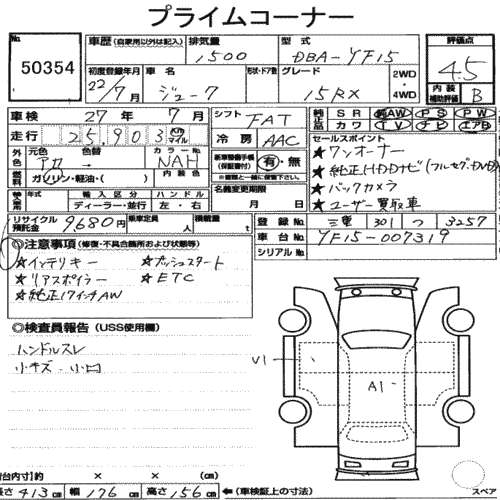 プライムコーナー
No. 50354
車歴 (自家用以外は記入) 排気量 1,500 型式 DBA-YF15
評価点 4.5
初度登録年月 22/7月 車名 ジューク 形状・ドア数 グレード 15RX 2WD・4WD
内装補助評価 B
車検 27年 7月 シフト FAT 純正品 SR AW PS PW
走行 25,903 Km マイル 冷房 AAC カワ TV ナビ エアB
外色 元色 アカ 色替 カラーNo. NAH 内装色
新車整備手帳(保証書) 有・無
※書類と一緒に保管しています
セールスポイント
★ワンオーナー
★純正HDDナビ(フルセグ・DVD)
★バックカメラ
★ユーザー買取車
燃料 ガソリン・軽油・( )
名義変更期限 月 日
輸入車 年式 輸入区分 ディーラー・並行 ハンドル 左・右
リサイクル預託金 9680円 乗車定員 人 積載量 t
登録No. 三重 301 つ 3257
車台No. YF15-007319
シリアルNo.
◎注意事項 (修復・不具合箇所および状態等)
★インテリキー ★プッシュスタート
★リアスポイラー ★ETC
★純正17インチAW
◎検査員報告 (USS使用欄)
ハンドルスレ
小キズ・小凹
V1
A1
荷台内寸 約 × × (cm)
長さ 413cm 幅 176cm 高さ 156cm ←(車検証上の寸法)
スペア